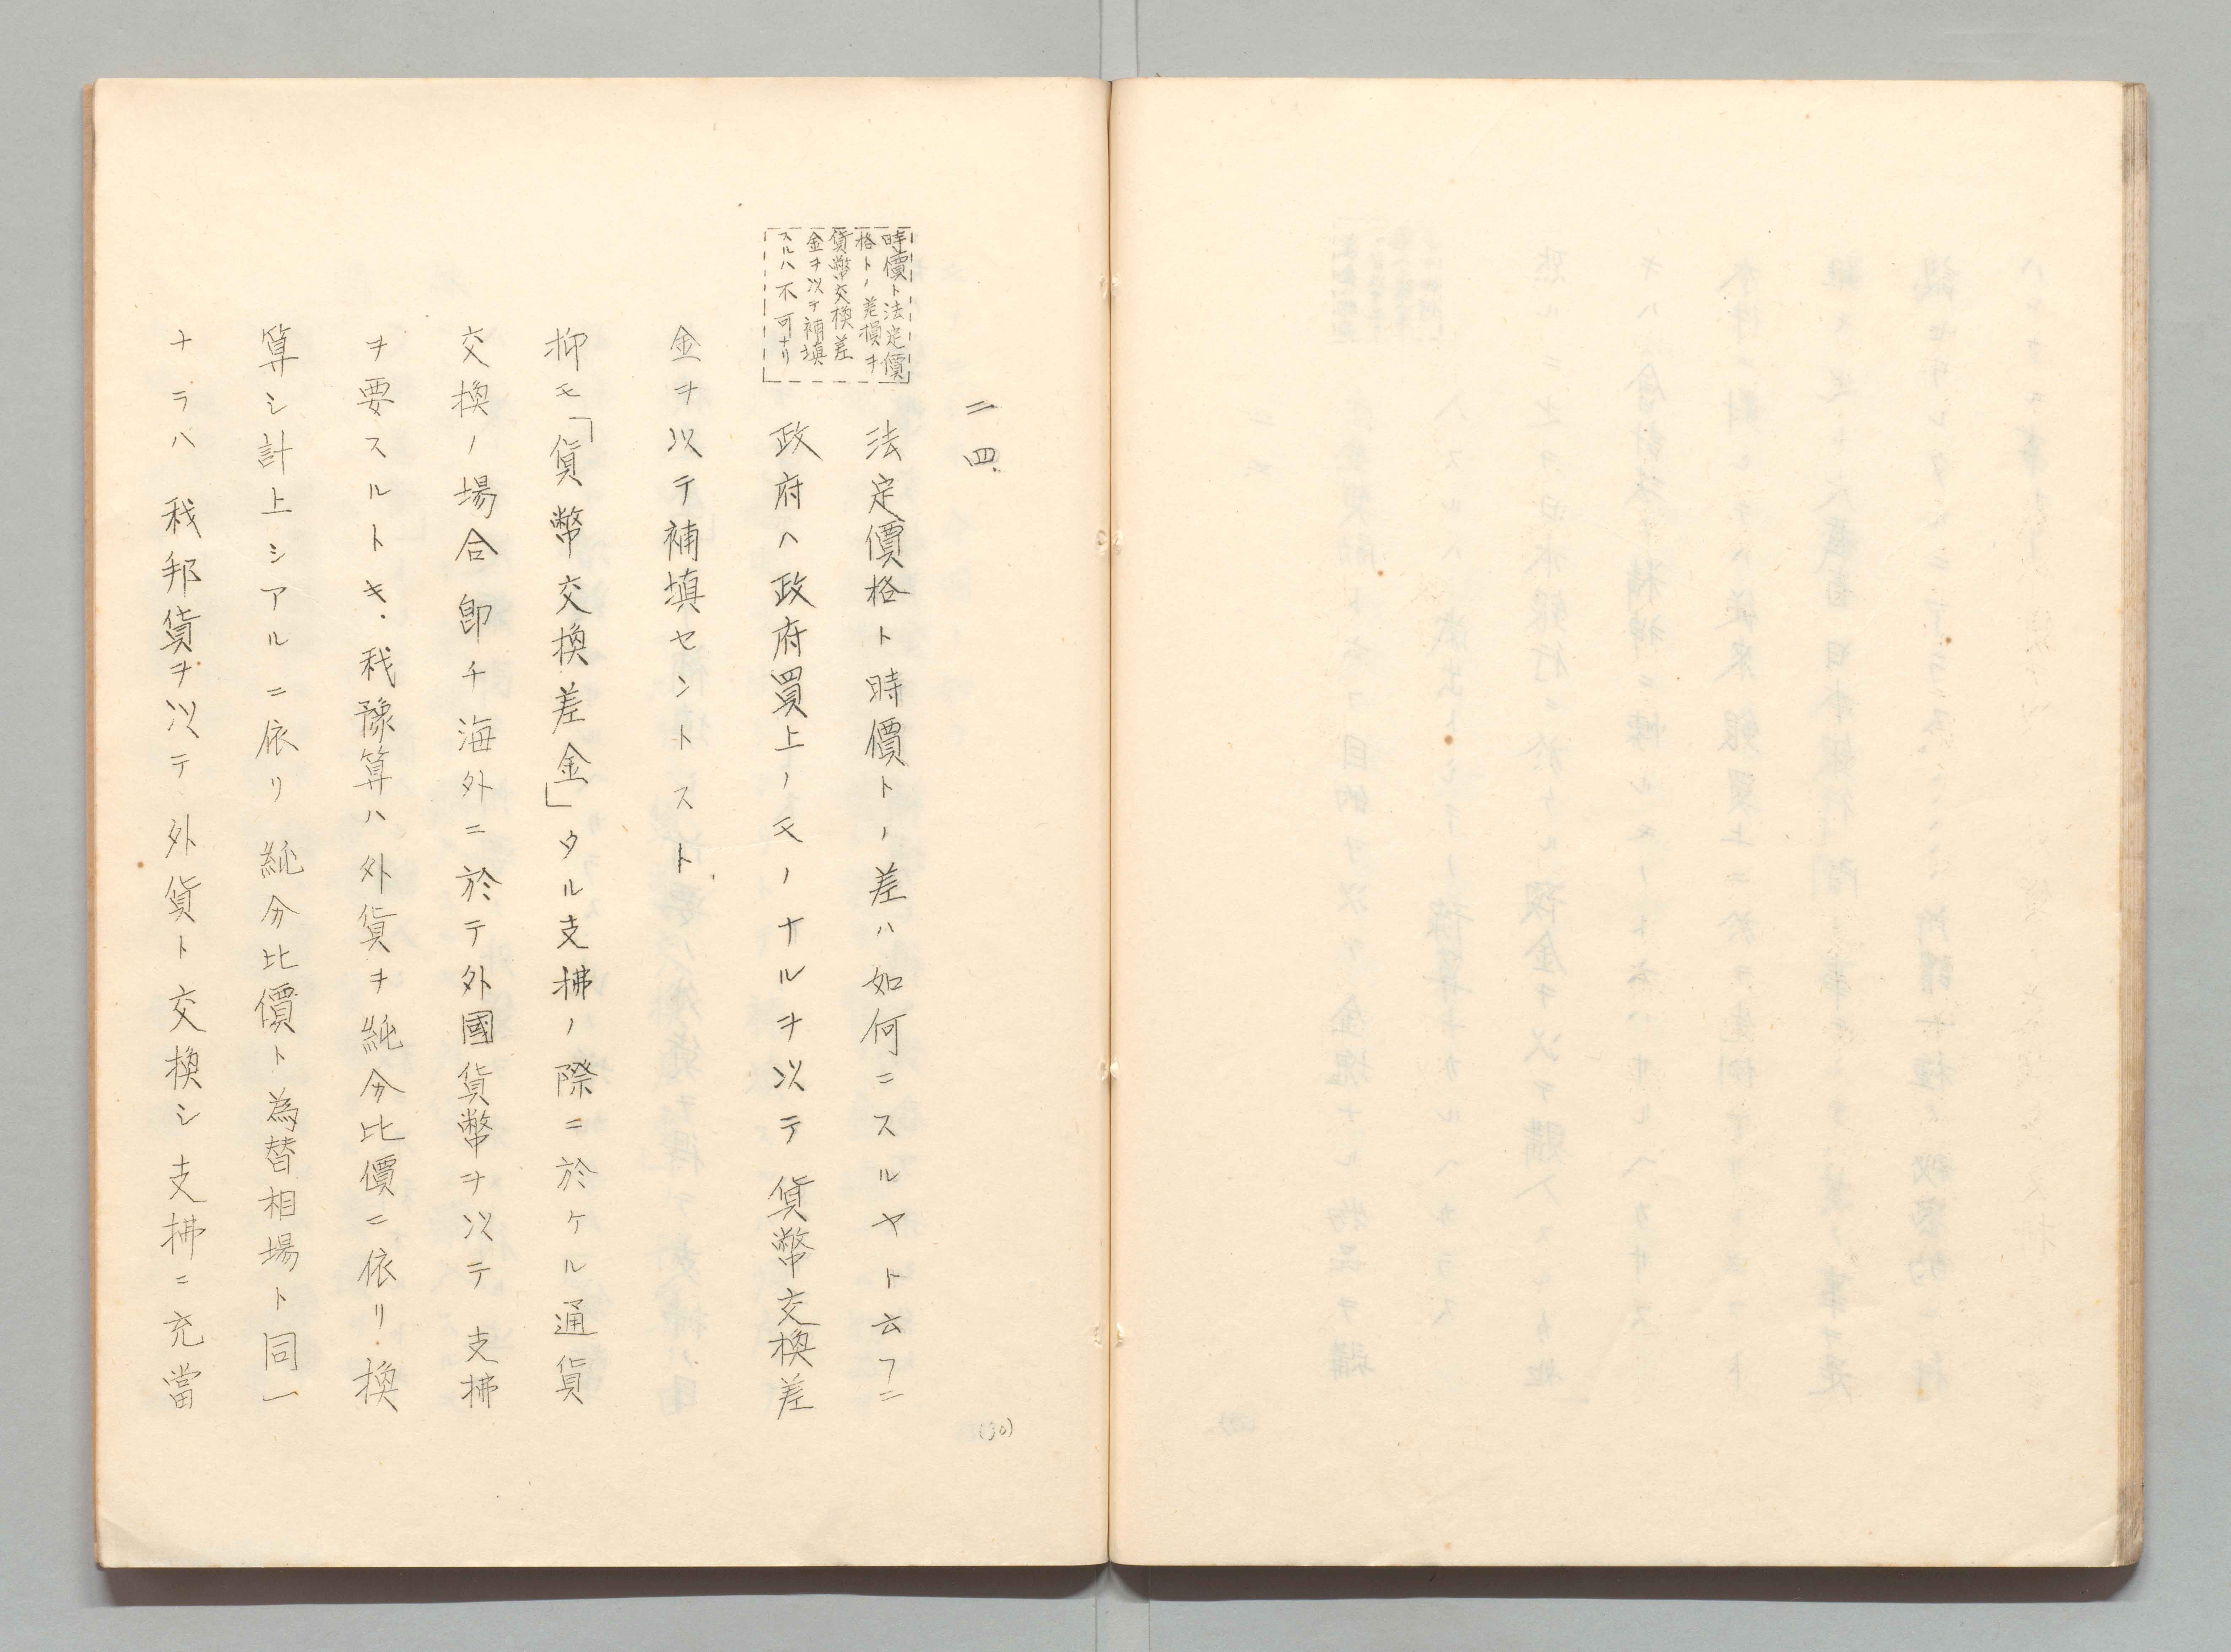 二四、
時價ト法定價
格トノ差損ヲ
貨幣交換差
金ヲ以テ補填
スルハ不可ナリ
法定價格ト時價トノ差ハ如何ニスルヤト云フニ
政府ハ政府買上ノモノナルヲ以テ貨幣交換差
金ヲ以テ補填セントスト
抑モ「貨幣交換差金」タル支拂ノ際ニ於ケル通貨
交換ノ場合即チ海外ニ於テ外國貨幣ヲ以テ支拂
ヲ要スルトキ、我豫算ハ外貨ヲ純分比價ニ依リ、換
算シ計上シアルニ依リ純分比價ト為替相場ト同一
ナラハ我邦貨ヲ以テ外貨ト交換シ支拂ニ充當
(30)